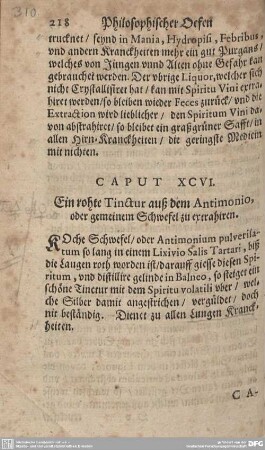 310
218 Philosophischer Oefen
trucknet / seynd in Mania, Hydropisi, Febribus,
vnd andern Kranckheiten mehr ein gut Purgans /
welches von Jungen vnnd Alten ohne Gefahr kan
gebrauchet werden. Der vbrige Liquor, welcher sich
nicht Crystallisiret hat / kan mit Spiritu Vini extra-
hiret werden / so bleiben wieder Feces zurück / vnd die
Extraction wird lieblicher / den Spiritum Vini da-
von abstrahiret / so bleibet ein graßgrüner Safft / in
allen Hirn-Kranckheiten / die geringste Medicin
mit nichten.
CAPUT XCVI.
Ein rohte Tinctur auß dem Antimonio,
oder gemeinem Schwefel zu extrahiren.
KOche Schwefel / oder Antimonium pulverisa-
tum so lang in einem Lixivio Salis Tartari, biß
die Laugen roth worden ist / darauff giesse diesen Spi-
ritum, vnd distillire gelinde in Balneo, so steiget ein
schöne Tinctur mit dem Spiritu volatili vber / wel-
che Silber damit angestrichen / vergüldet / doch
nit beständig. Dienet zu allen Lungen Kranck-
heiten.
CA-